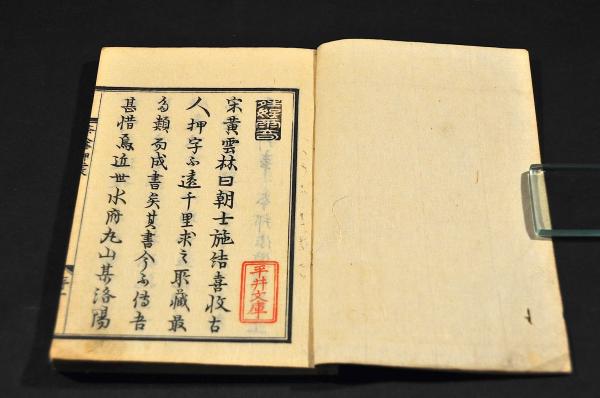 宋黄雲林曰朝士施結喜收古
人押字不遠千里求之所藏最
多類而成書矣其書今不傳吾
甚惜焉近世水府丸山某洛陽
平井文庫